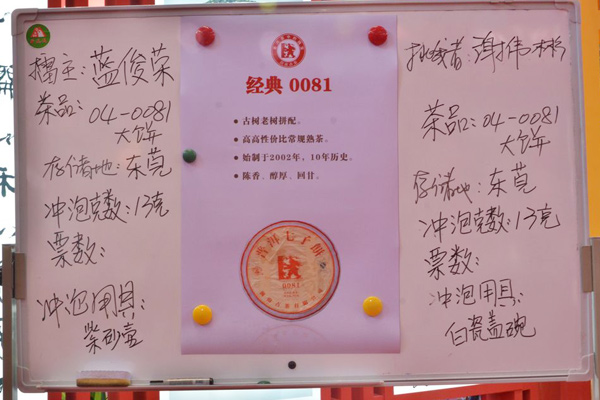 擂主：蓝俊荣
茶品：04-0081
大饼
存储地：东莞
冲泡克数：13克
票数：
冲泡用具：
紫砂壶
经典 0081
• 古树老树拼配。
• 高高性价比常规熟茶。
• 始制于2002年，10年历史。
• 陈香、醇厚、回甘。
普洱七子饼
0081
挑战者：谭伟彬
茶品：04-0081
大饼
存储地：东莞
冲泡克数：13克
票数：
冲泡用具：
白瓷盖碗